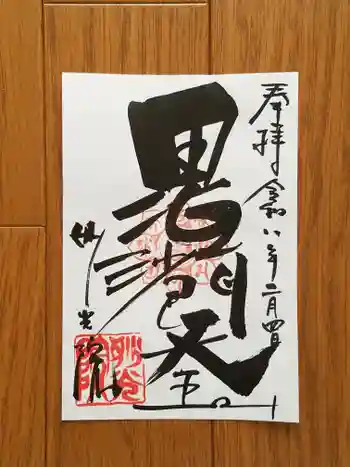 奉拝 令和八年二月四日
毘沙門天王
光院